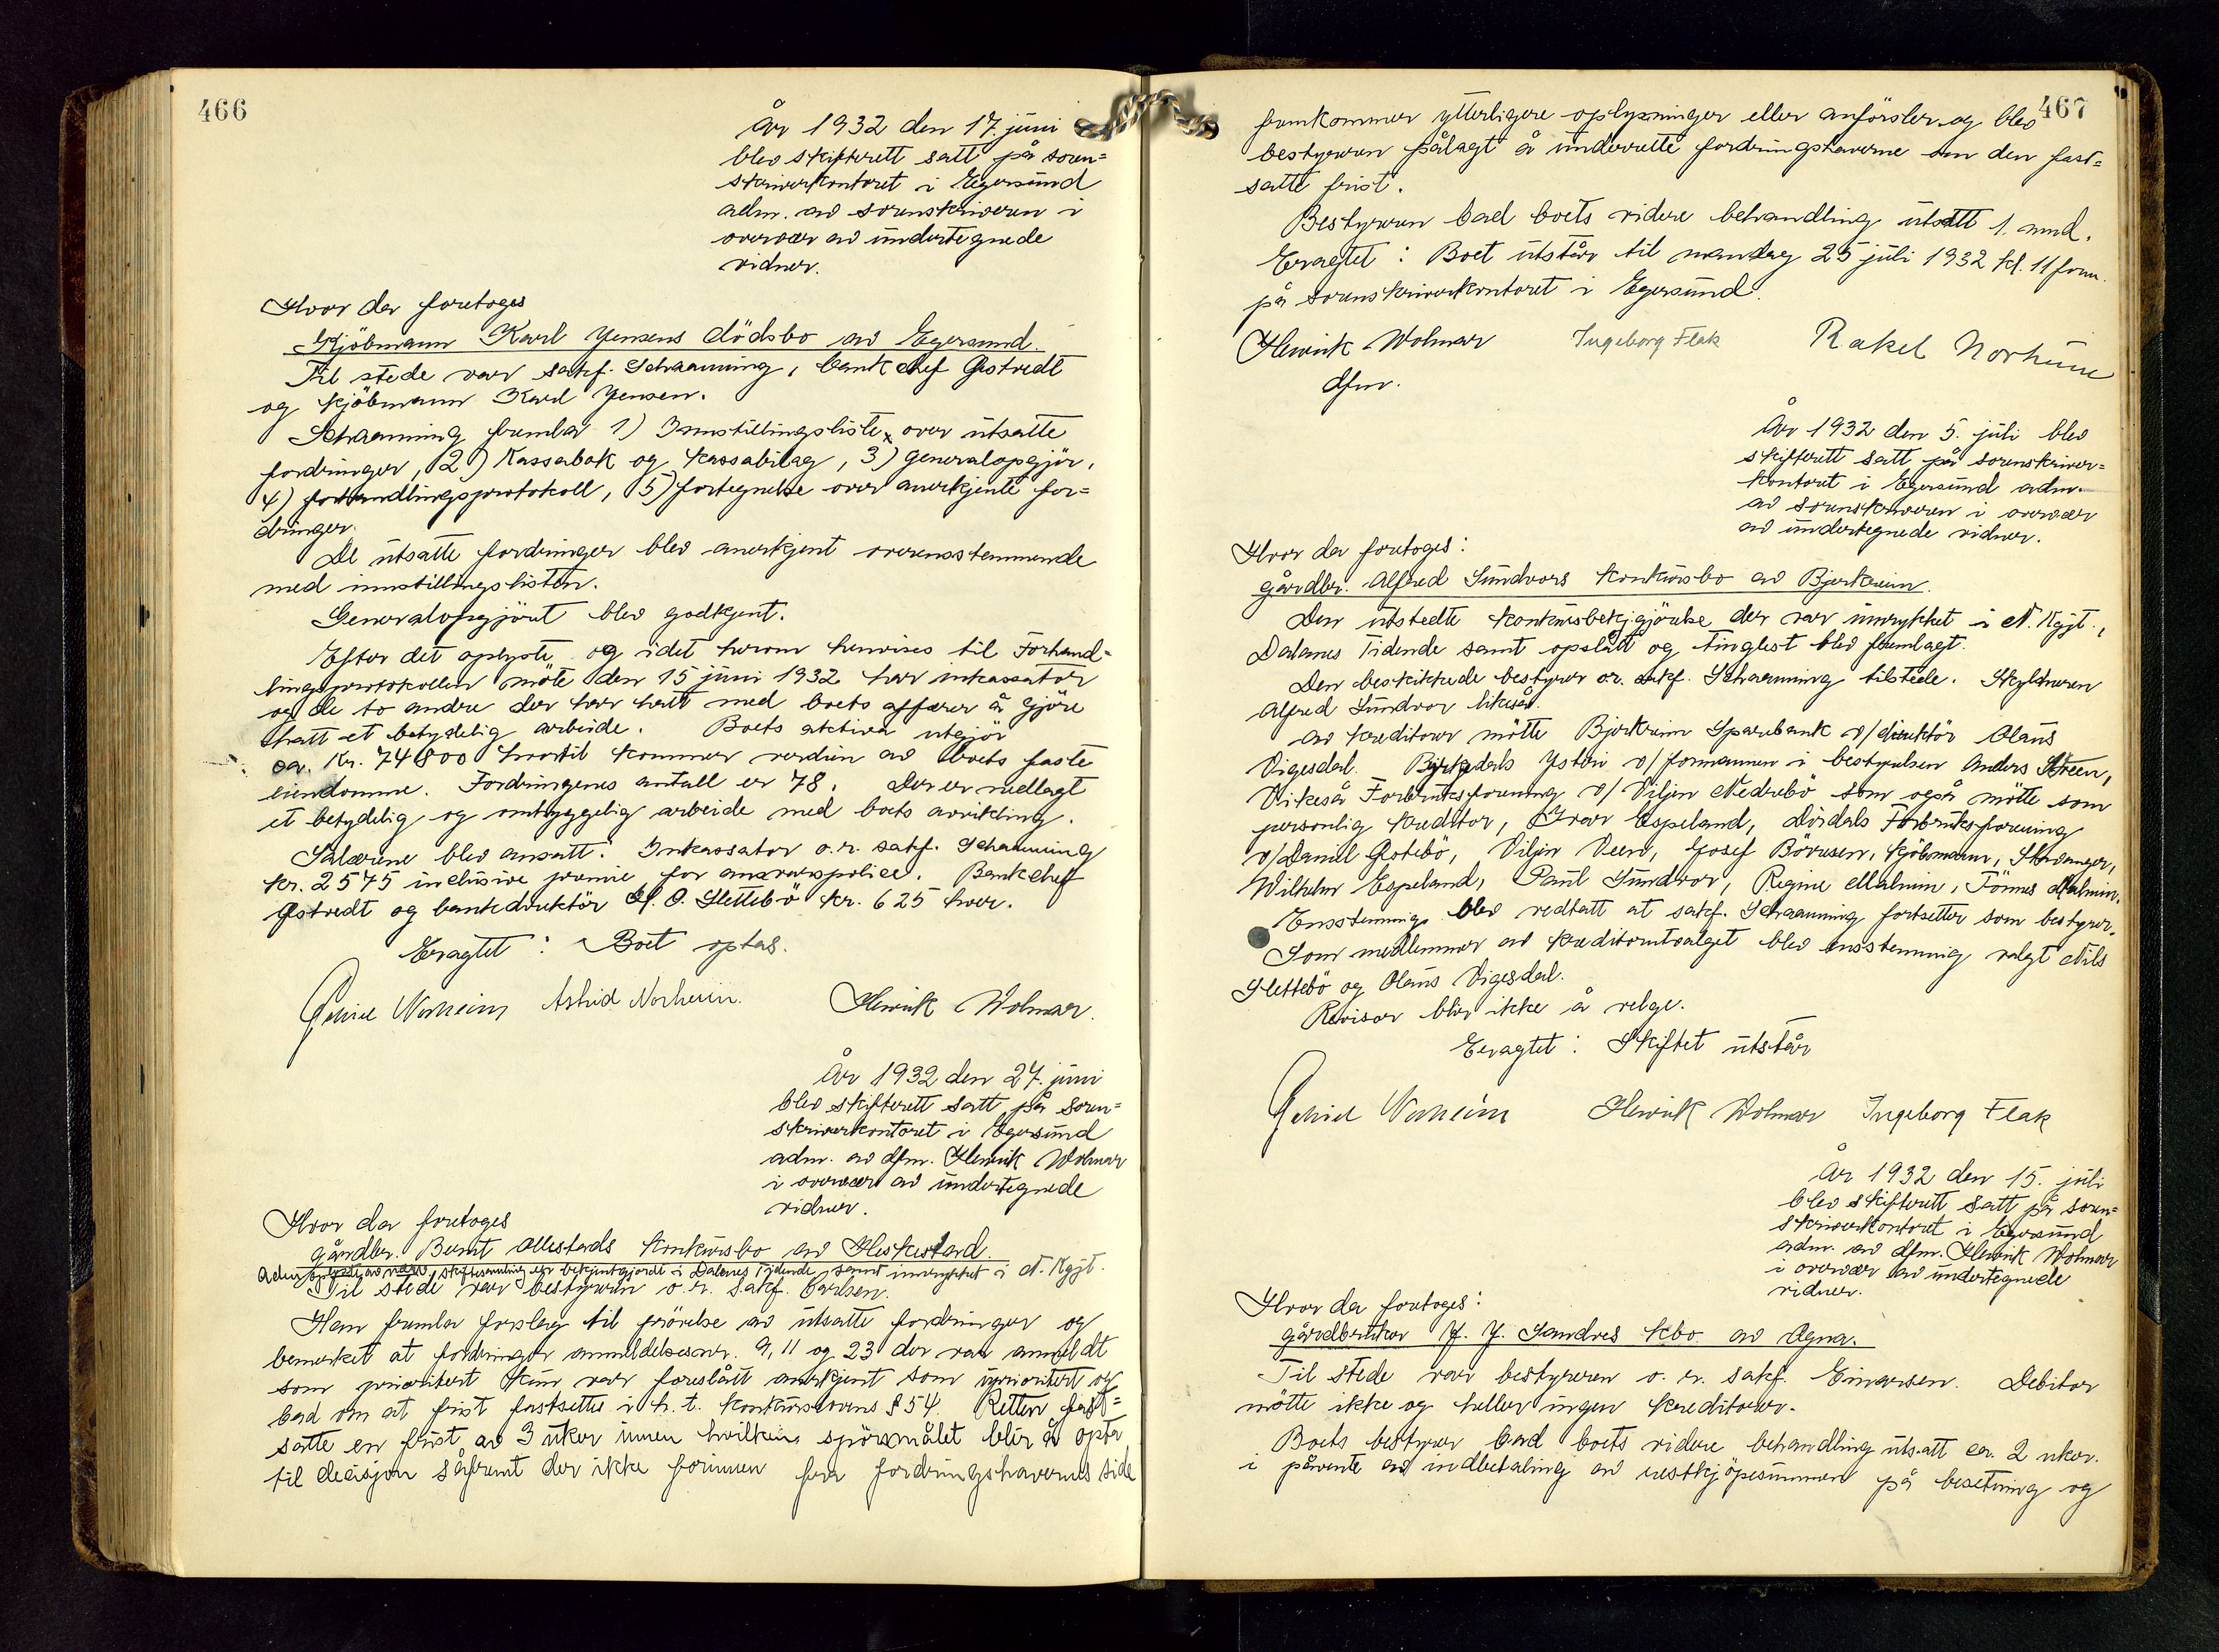 466
År 1932 den 17. juni
blev skifterett satt på soren=
skriverkontoret i Egersund
adm. av sorenskriveren i
overvær av undertegnede
vidner.
Hvor da foretoges
Kjöbmann Karl Jensens dödsbo av Egersund.
Til stede var sakf. Schaanning, bankchef Gistvedt
og kjöbmann Karl Jensen.
Schaanning fremla 1) Innstillingsliste over utsatte
fordringer, 2) Kassabok og kassabilag, 3) generalopgjör,
4) forhandlingsprotokoll, 5) fortegnelse over anerkjente for=
dringer.
De utsatte fordringer blev anerkjent overensstemmende
med innstillingslisten.
Generalopgjöret blev godkjent.
Efter det oplyste og idet herom henvises til Forhand=
lingsprotokollen möte den 15 juni 1932 har inkassator
og de to andre der har hatt med boets affærer å gjöre
hatt et betydelig arbeide. Boets aktiva utgjör
ca. kr. 74800 hvortil kommer verdien av boets faste
eiendomme. Fordringenes antall er 78. Der er nedlagt
et betydelig og omhyggelig arbeide med boets avvikling.
Salærene blev ansatt: Inkassator o.r. sakf. Schaanning
kr. 2575 inclusive premie for ansvarspolice. Bankchef
Gistvedt og bankdirektör O. Slettebö kr. 625 hver.
Eragtet: Boet optas.
Norheim Astrid Norheim. Henrik Wolmar.
År 1932 den 27. juni
blev skifterett satt på soren=
skriverkontoret i Egersund
adm. av dfm. Henrik Wolmar
i overvær av undertegnede
vidner.
Hvor da foretoges
gårdbr. Bernt Ollestads konkursbo av Heskestad.
Adm. oplyste av skiftesamling er bekjentgjordt i Dalanes Tidende, samt innrykket i N. Kgjt.
Til stede var bestyreren o.r. sakf. Carlsen.
Han fremla forslag til prövelse av utsatte fordringer og
bemerket at fordringer anmeldelsesnr. 9, 11 og 23 der var anmeldt
som prioritert kun var foreslått anerkjent som uprioritert og
bad om at frist fastsettes i h. t. konkurslovens § 54. Retten fast=
satte en frist av 3 uker innen hvilken spörsmålet blir å opta
til decisjon såfremt der ikke forinnen fra fordringshavernes side
467
fremkommer ytterligere oplysninger eller anförsler og blev
bestyreren pålagt å underrette fordringshaverne om den fast=
satte frist.
Bestyreren bad boets videre behandling utsatt 1. mnd.
Eragtet: Boet utstår til mandag 25 juli 1932 kl. 11 form.
på sorenskriverkontoret i Egersund.
Henrik Wolmar Ingeborg Flak Rakel Norheim
dfm.
År 1932 den 5. juli blev
skifterett satt på sorenskriver=
kontoret i Egersund adm.
av sorenskriveren i overvær
av undertegnede vidner.
Hvor da foretoges:
gårdbr. Alfred Sundvors konkursbo av Bjerkreim.
Den utstedte konkursbekjgjörelse der var innrykket i N. Kgjt.,
Dalanes Tidende samt opslått og tinglest blev fremlagt.
Den beskikkede bestyrer o.r. sakf. Schaanning tilstede. Skyldneren
Alfred Sundvor likeså.
Av kreditorer mötte Bjerkreim Sparebank v/ direktör Olaus
Vigesdal. Bjerkreims Ysteri v/ formannen i bestyrelsen Anders Steen,
Vikeså Forbruksforening v/ Viljen Nedrebö som også mötte som
personlig kreditor, Ivar Espeland, Dirdals Forbruksforening
v/ Daniel Gotebö, Viljen Veen, Josef Börresen, kjöbmann, Stavanger,
Wilhelm Espeland, Paul Sundvor, Regine Malmin, Tönnes Malmin.
Ensstemmig blev vedtatt at sakf. Schaanning fortsetter som bestyrer.
Som medlemmer av kreditorutvalget blev ensstemmig valgt Nils
Slettebö og Olaus Vigesdal.
Revisor blir ikke å velge.
Eragtet: Skiftet utstår
Norheim Henrik Wolmar Ingeborg Flak
År 1932 den 15. juli
blev skifterett satt på soren=
skriverkontoret i Egersund
adm. av dfm. Henrik Wolmar
i overvær av undertegnede
vidner.
Hvor da foretoges:
gårdbruker J. J. Sandves kbo. av Ogna.
Til stede var bestyreren o. r. sakf. Einarsen. Debitor
mötte ikke og heller ingen kreditorer.
Boets bestyrer bad boets videre behandling utsatt ca. 2 uker.
i påvente av indbetaling av restkjöpesummen på besetning og